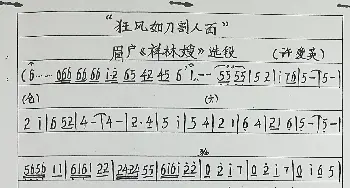 “狂风如刀割人面”
眉户《祥林嫂》选段 (许爱英)
(6····· 066 66 66 i2 65 42 45 6 i.--- 55 55 | 5 2 | i 76 | 5 - | 5 - |
2 i | 6 52 | 4 - | 4 - | 2· 4 | 5 i | 5 4 | 2 1 | 6 4 | 21 6 | 5 - | 5 - |
5656 11 | 6161 22 | 2424 55 | 6161 22 | 0 2 i 7 | 0 2 i 7 | 0 i 6 5 |